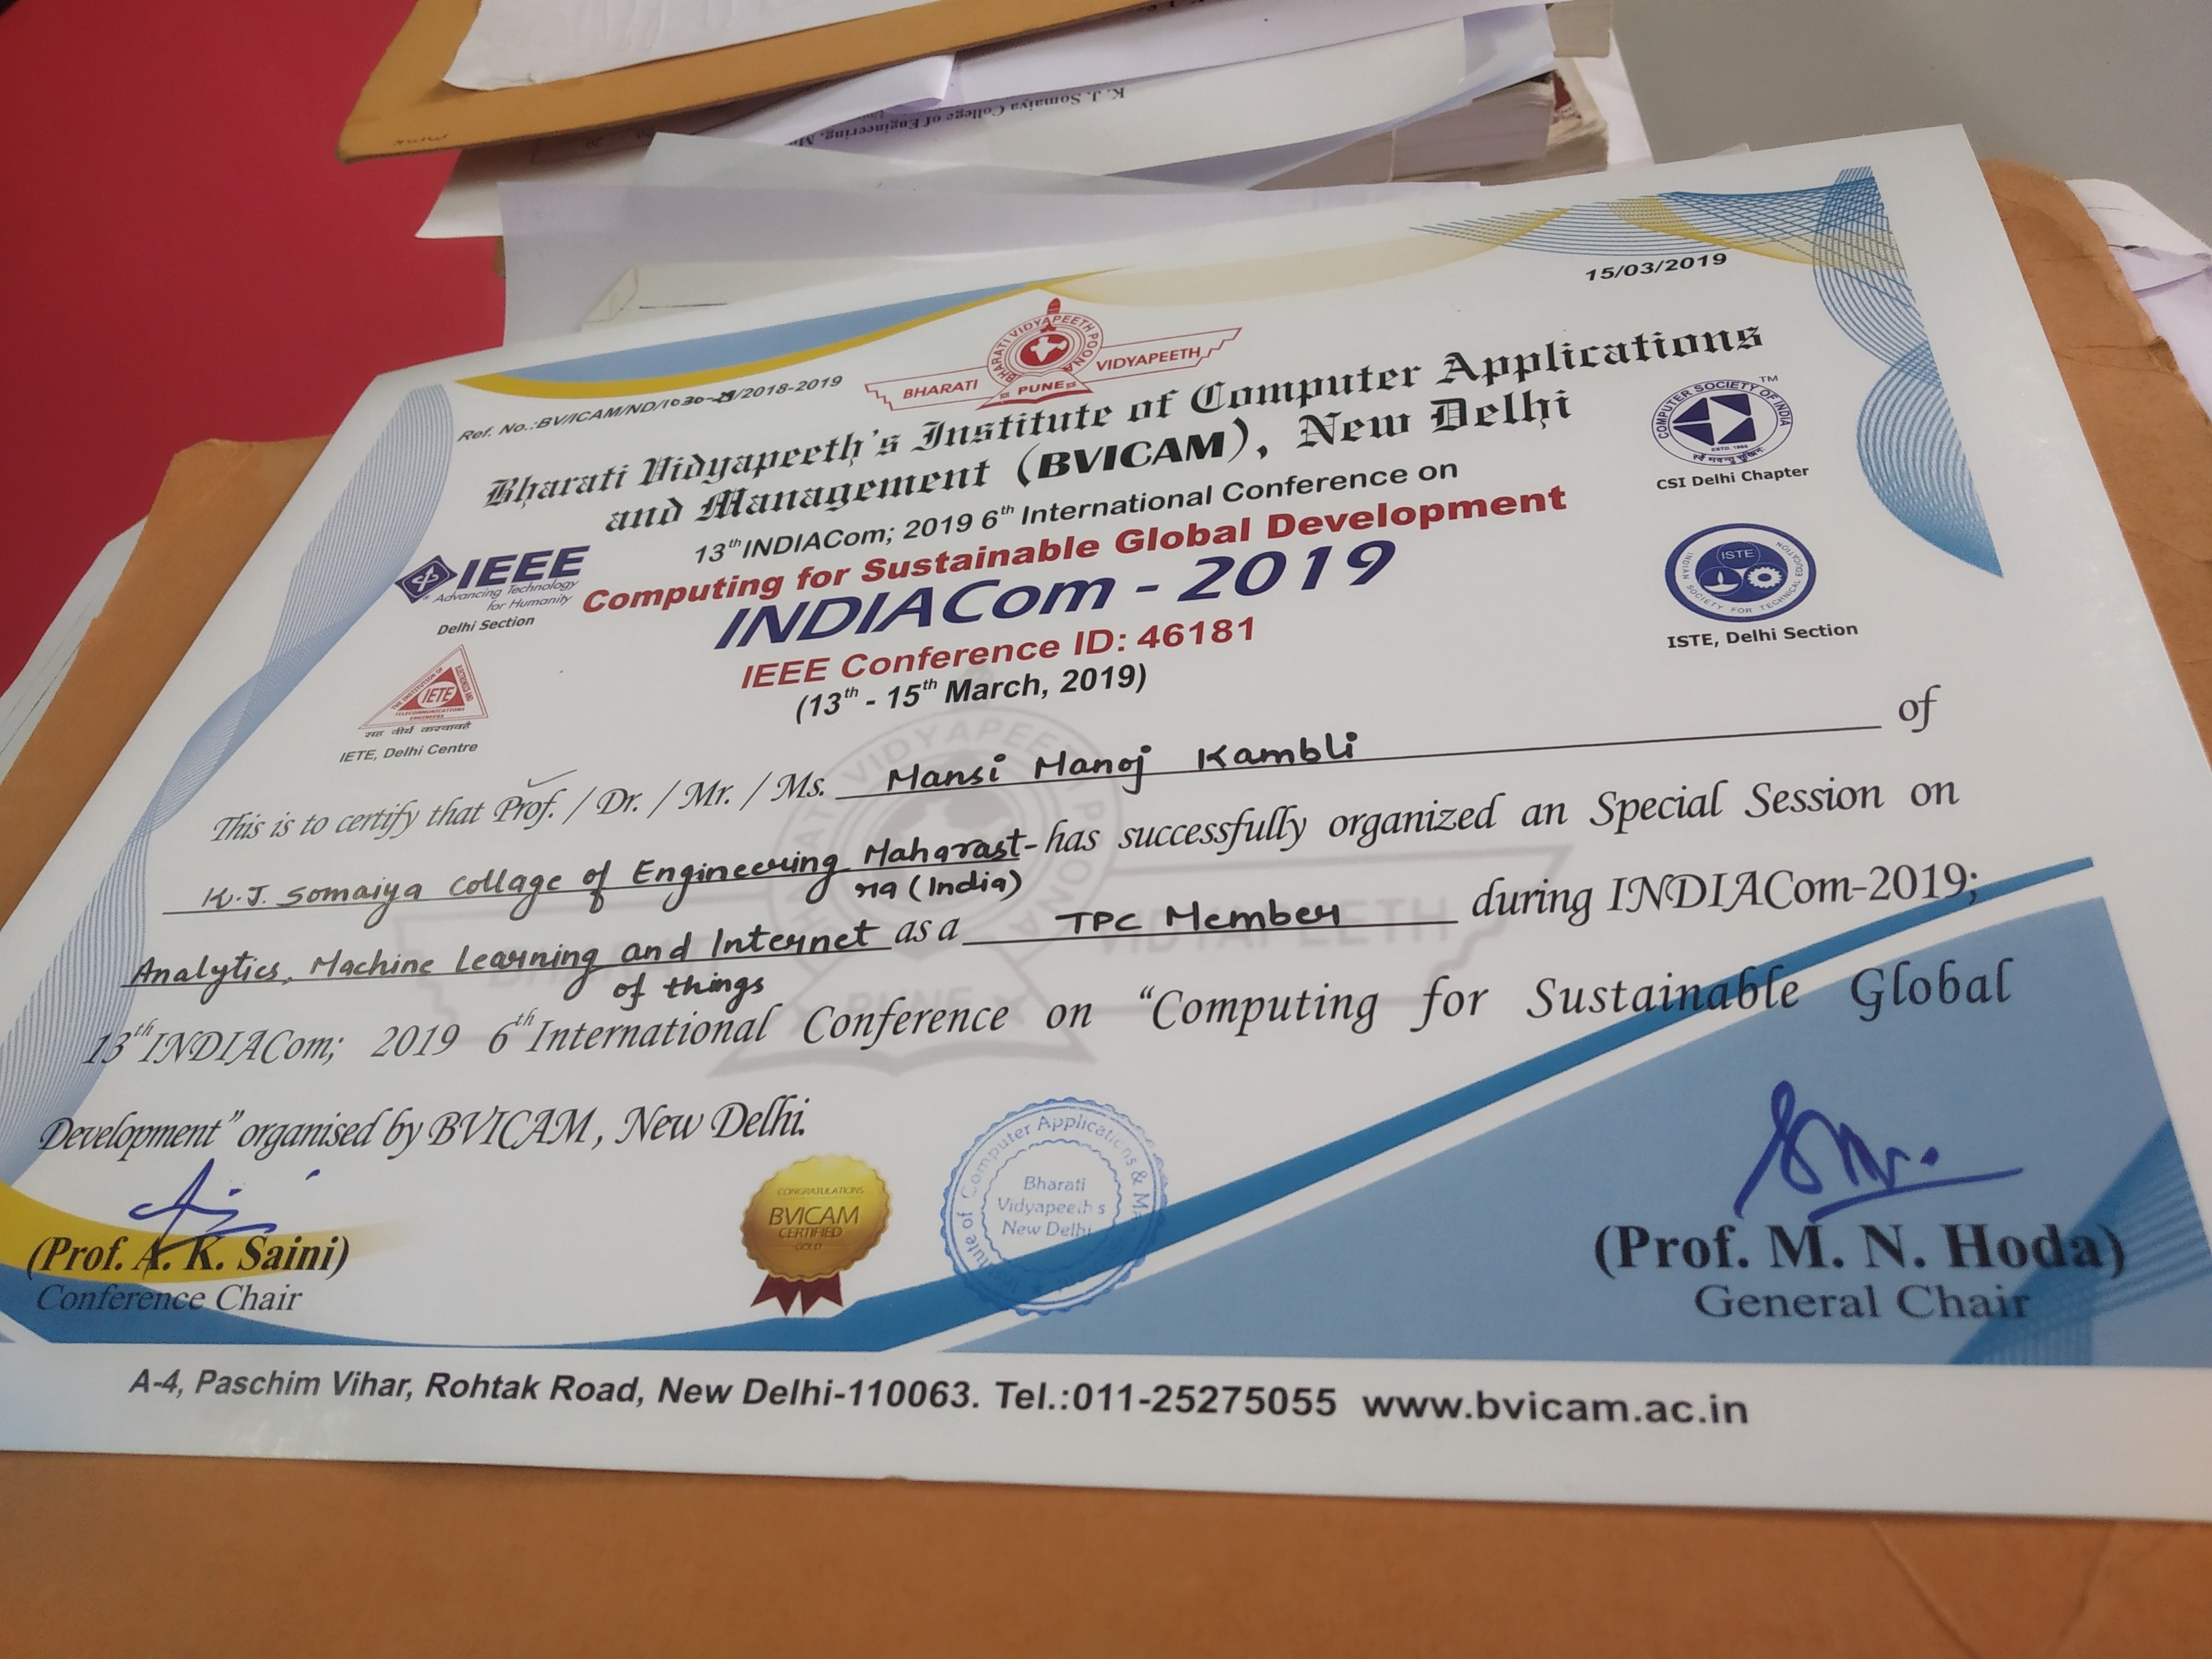 K. J. Somaiya College of Engineering, M
15/03/2019
BHARATI VIDYAPEETH POONA
BHARATI PUNE VIDYAPEETH
Ref. No.:BV/ICAM/ND/1030-/2018-2019
Bharati Vidyapeeth's Institute of Computer Applications
and Management (BVICAM), New Delhi
13th INDIACom; 2019 6th International Conference on
Computing for Sustainable Global Development
INDIACom - 2019
IEEE Conference ID: 46181
(13th - 15th March, 2019)
IEEE
Advancing Technology
for Humanity
Delhi Section
THE INSTITUTION OF ELECTRONICS AND
IETE
TELECOMMUNICATIONS
ENGINEERS
IETE, Delhi Centre
COMPUTER SOCIETY OF INDIA
TM
ESTD. 1965
CSI Delhi Chapter
ISTE
INDIAN SOCIETY FOR TECHNICAL EDUCATION
ISTE, Delhi Section
This is to certify that Prof. / Dr. / Mr. / Ms. Mansi Manoj Kambli of
K.J. Somaiya Collage of Engineering Maharast- has successfully organized an Special Session on
ra (India)
Analytics, Machine Learning and Internet as a TPC Member during INDIACom-2019;
of things
13th INDIACom; 2019 6th International Conference on "Computing for Sustainable Global
Development" organised by BVICAM, New Delhi.
CONGRATULATIONS
BVICAM
CERTIFIED
GOLD
Computer Applications & M
Bharati
Vidyapeeth s
New Delhi
(Prof. A. K. Saini)
Conference Chair
(Prof. M. N. Hoda)
General Chair
A-4, Paschim Vihar, Rohtak Road, New Delhi-110063. Tel.:011-25275055 www.bvicam.ac.in